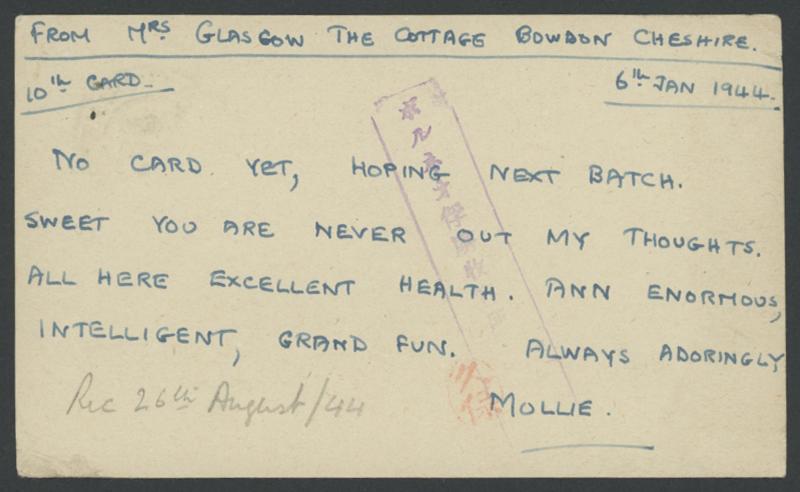 FROM MRS GLASGOW THE COTTAGE BOWDON CHESHIRE.
10th CARD.
6th JAN 1944.
NO CARD YET, HOPING NEXT BATCH.
SWEET YOU ARE NEVER OUT MY THOUGHTS.
ALL HERE EXCELLENT HEALTH. ANN ENORMOUS,
INTELLIGENT, GRAND FUN. ALWAYS ADORINGLY
MOLLIE.
Rec 26th August/44
ボルネオ俘